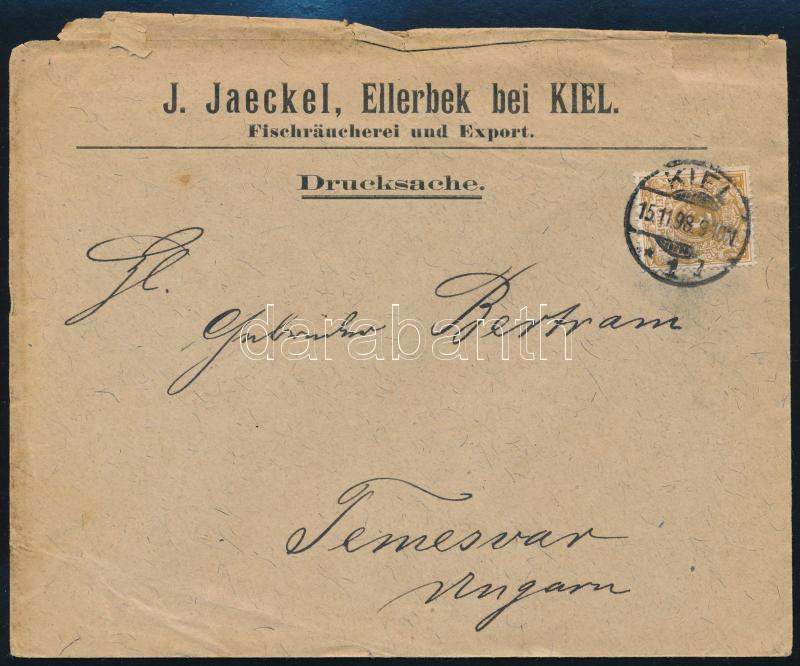 J. Jaeckel, Ellerbek bei KIEL.
Fischräucherei und Export.
Drucksache.
KIEL
15.11.98.
1
Gebrüder Bertram
darabanth
Temesvar
Ungarn